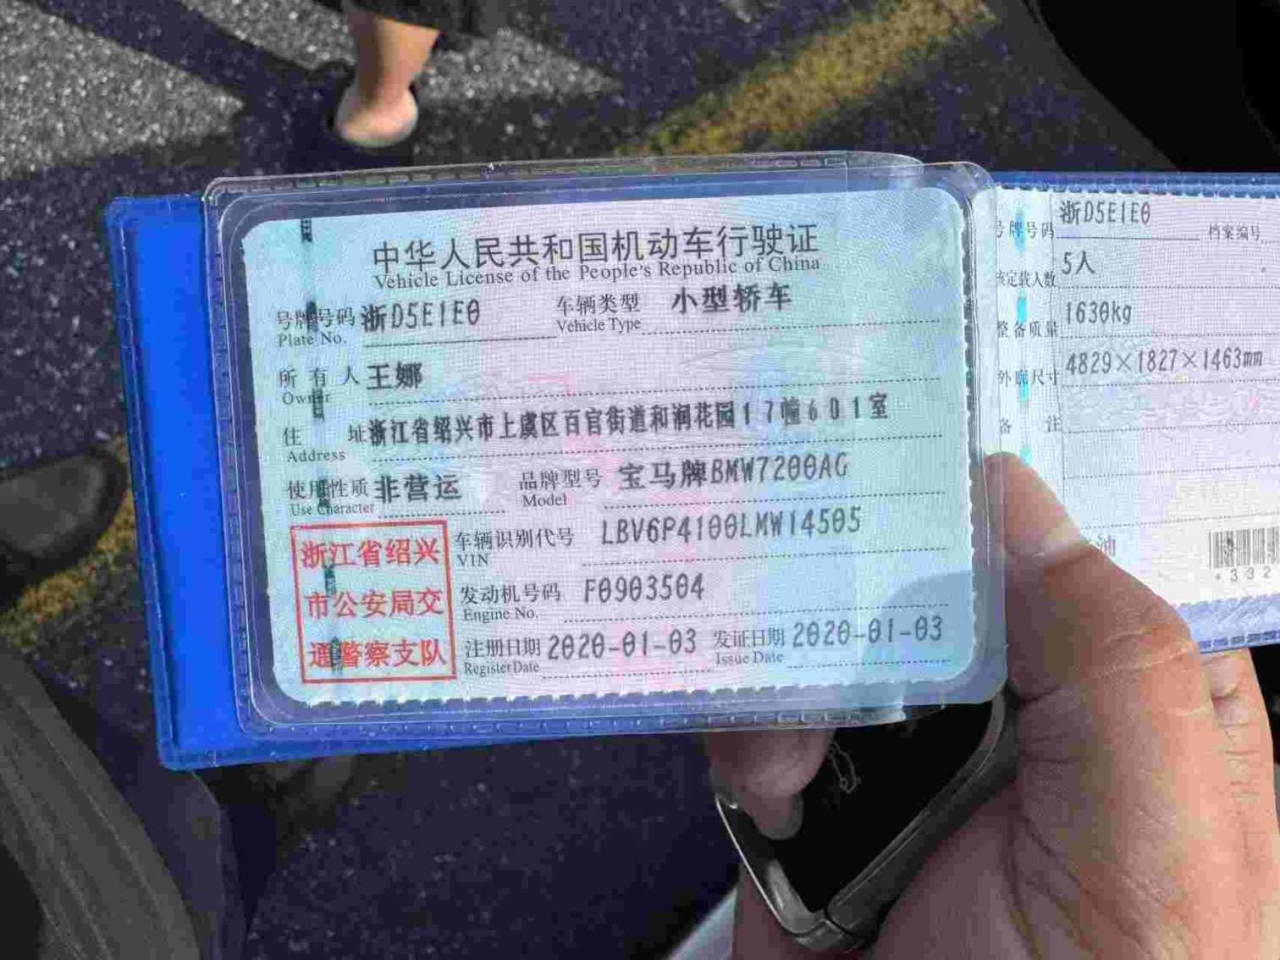 中华人民共和国机动车行驶证
Vehicle License of the People's Republic of China
号牌号码 浙D5E1E0 车辆类型 小型轿车
Plate No. Vehicle Type
所有人 王娜
Owner
住址 浙江省绍兴市上虞区百官街道和润花园17幢601室
Address
使用性质 非营运 品牌型号 宝马牌BMW7200AG
Use Character Model
浙江省绍兴
市公安局交
通警察支队
车辆识别代号 LBV6P4100LMW14505
VIN
发动机号码 F0903504
Engine No.
注册日期 2020-01-03 发证日期 2020-01-03
Register Date Issue Date
号牌号码 浙D5E1E0 档案编号
核定载人数 5人
整备质量 1630kg
外廓尺寸 4829×1827×1463mm
备注
油
*332